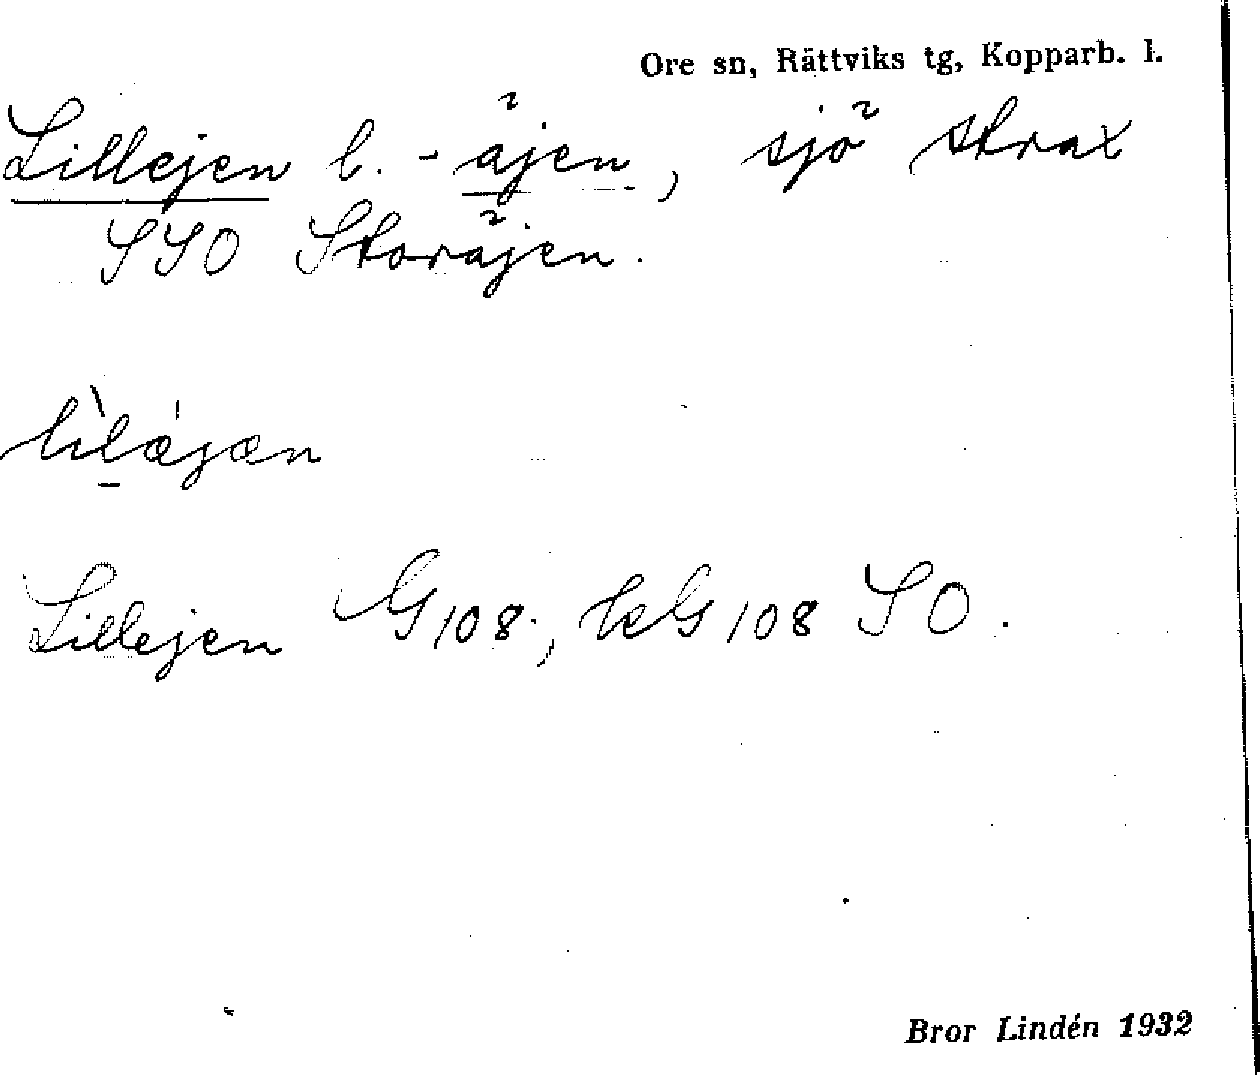 Ore sn, Rättviks tg, Kopparb. l.
Lillejen l. -äjen, sjö strax
SSO Storäjen.
lìlǽjæn
Lillejen G108, leG108 SO.
Bror Lindén 1932